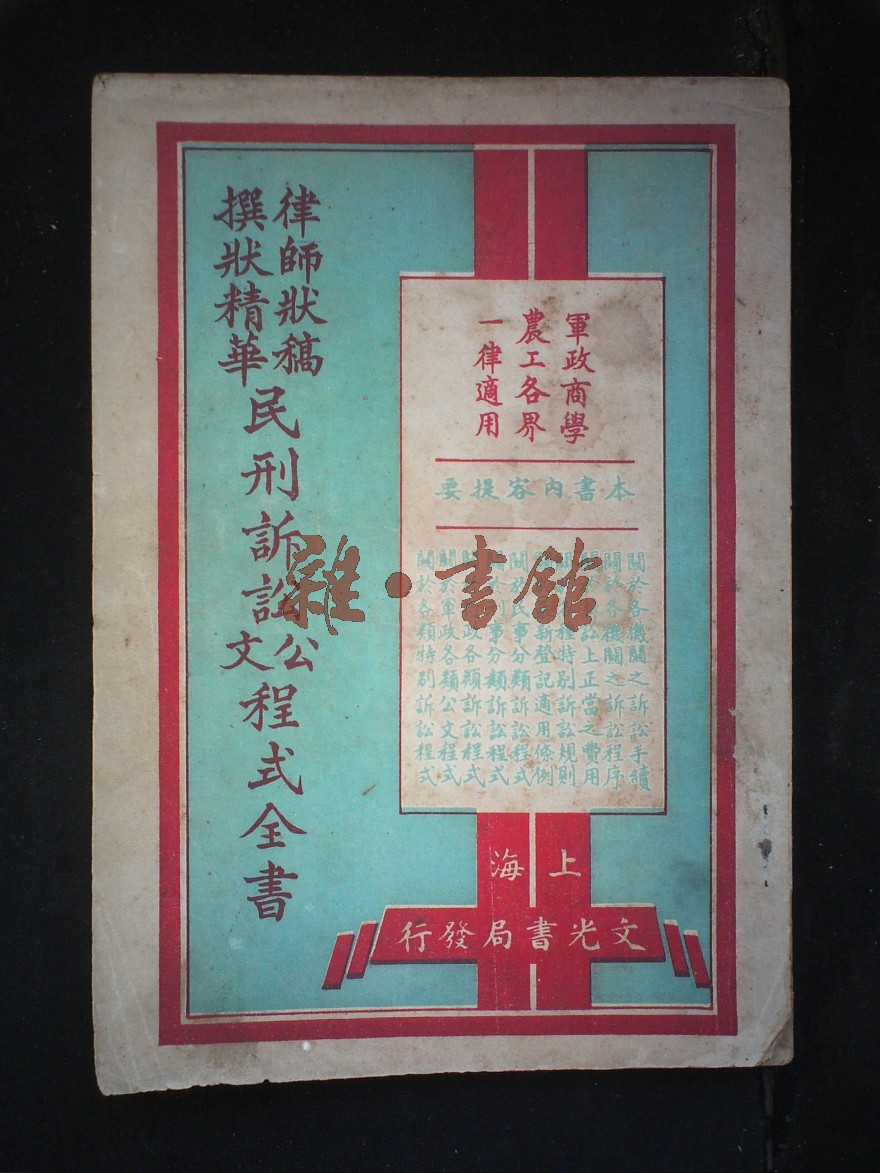 軍政商學
農工各界
一律適用
本書內容提要
關於各機關之訴訟手續
關於各機關之訴訟程序
訟上正當之費用
程特別訴訟規則
新登記適用條例
關於民事分類訴訟程式
事分類訴訟程式
政各類訴訟程式
關於軍政各類公文程式
關於各類特別訴訟程式
上海
文光書局發行
律師狀稿
撰狀精華
民刑訴訟公文程式全書
雜·書館